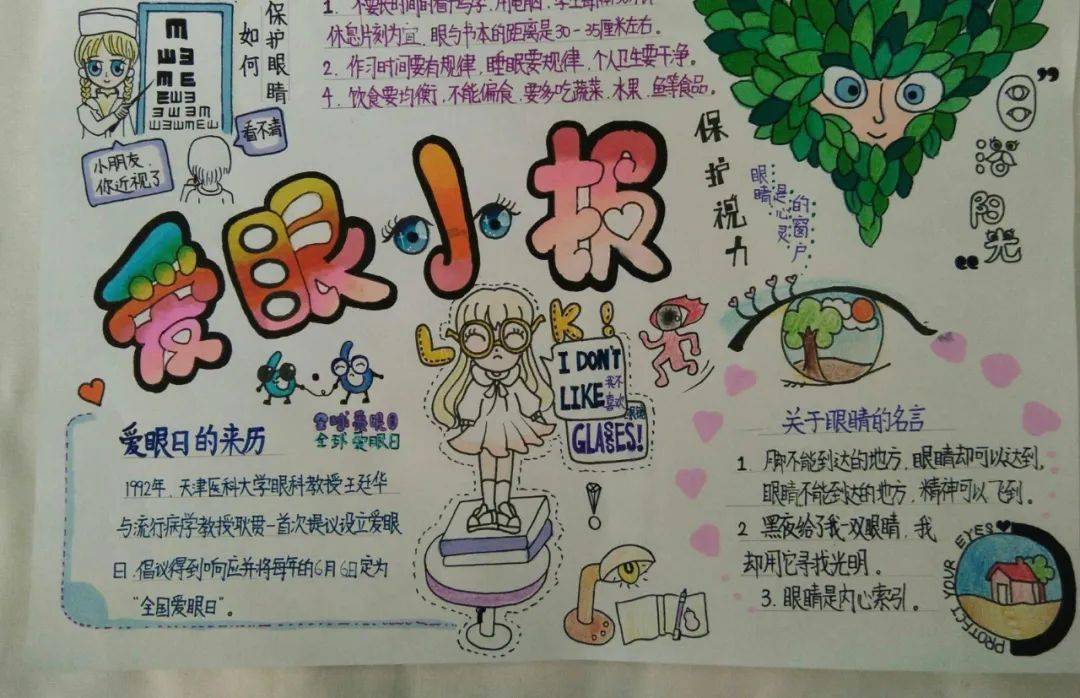 如何
保护眼睛
小朋友,
你近视了
看不清
休息片刻为宜.眼与书本的距离是30-35厘米左右。
2、作习时间要有规律,睡眠要规律,个人卫生要干净。
4、饮食要均衡,不能偏食,要多吃蔬菜、水果、鱼等食品。
爱眼小报
保护视力
眼睛
是心灵
的窗户
阳光
L K!
I DON'T
LIKE
我不
喜欢
眼镜
GLASSES!
全球爱眼日
全球爱眼日
爱眼日的来历
1992年,天津医科大学眼科教授王延华
与流行病学教授耿贯一首次提议设立爱眼
日,倡议得到响应并将每年的6月6日定为
“全国爱眼日”。
关于眼睛的名言
1、脚不能到达的地方,眼睛却可以达到,
眼睛不能到达的地方,精神可以飞到。
2 黑夜给了我一双眼睛,我
却用它寻找光明。
3.眼睛是内心索引。
PROTECT YOUR EYES